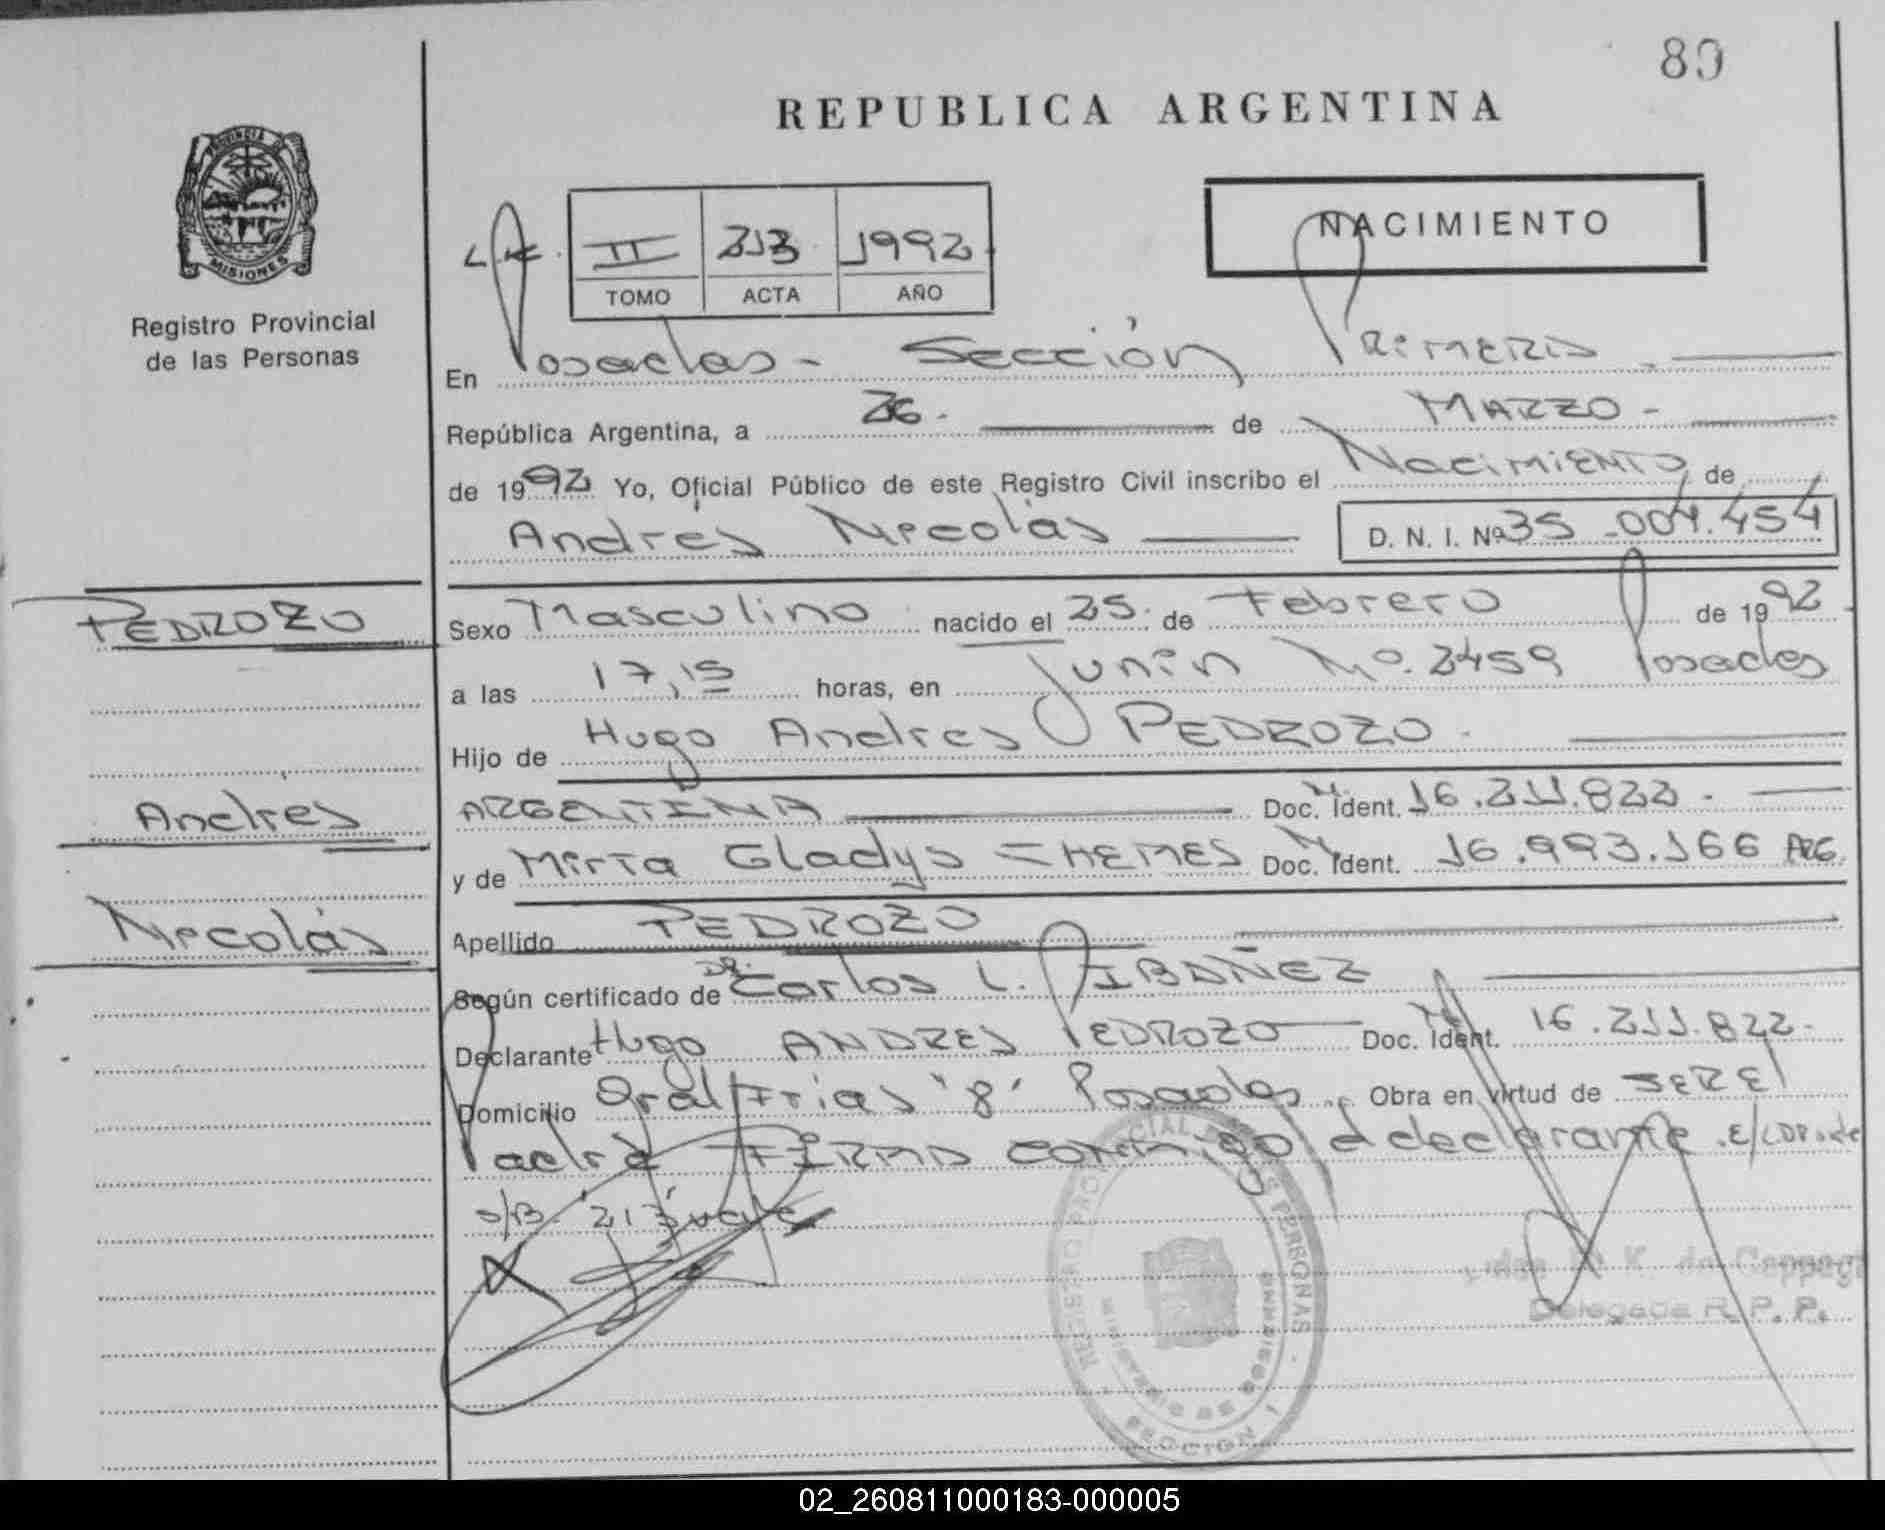 89
REPUBLICA ARGENTINA
PROVINCIA DE
MISIONES
Registro Provincial
de las Personas
II 213 1992
TOMO ACTA AÑO
NACIMIENTO
En Posadas - Sección Primera
República Argentina, a 26. de MARZO -
de 1992 Yo, Oficial Público de este Registro Civil inscribo el Nacimiento de
Andres Nicolás D. N. I. Nº 35.004.454
PEDROZO
Sexo Masculino nacido el 25. de Febrero de 1992
a las 17,15 horas, en Junin Nº. 2459 Posadas
Hijo de Hugo Andres PEDROZO.
Andrés
ARGENTINA Doc. Ident. 16.211.822.
y de Mirta Gladys CHEMES Doc. Ident. 16.993.166 ARG.
Nicolás
Apellido PEDROZO
Según certificado de DR. Carlos L. IBAÑEZ
Declarante Hugo ANDRES PEDROZO Doc. Ident. 16.211.822.
Domicilio Gral Frias "8" Posadas. Obra en virtud de SER El
Padre FIRMA conmigo el declarante.
S/B. 213 vale
REGISTRO PROVINCIAL DE LAS PERSONAS
MINISTERIO DE GOBIERNO
SECCION 1
Delegada R. P. P.
02_260811000183-000005